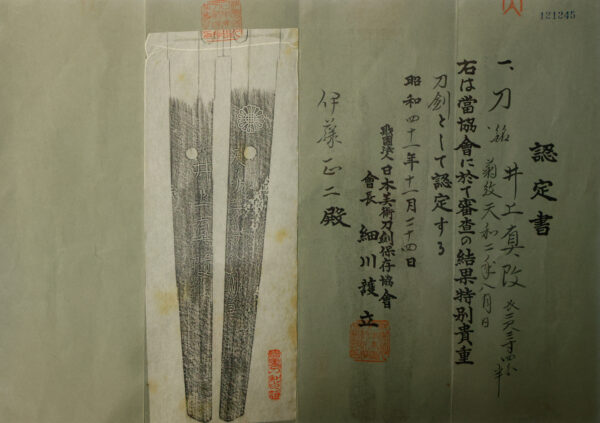 121245
認定書
一、刀 銘 井上真改 長二尺三寸四分半
菊紋 天和二年八月日
右は當協會に於て審査の結果特別貴重
刀劍として認定する
昭和四十一年十一月二十四日
財團法人日本美術刀劍保存協會
會長 細川護立
伊藤正二殿